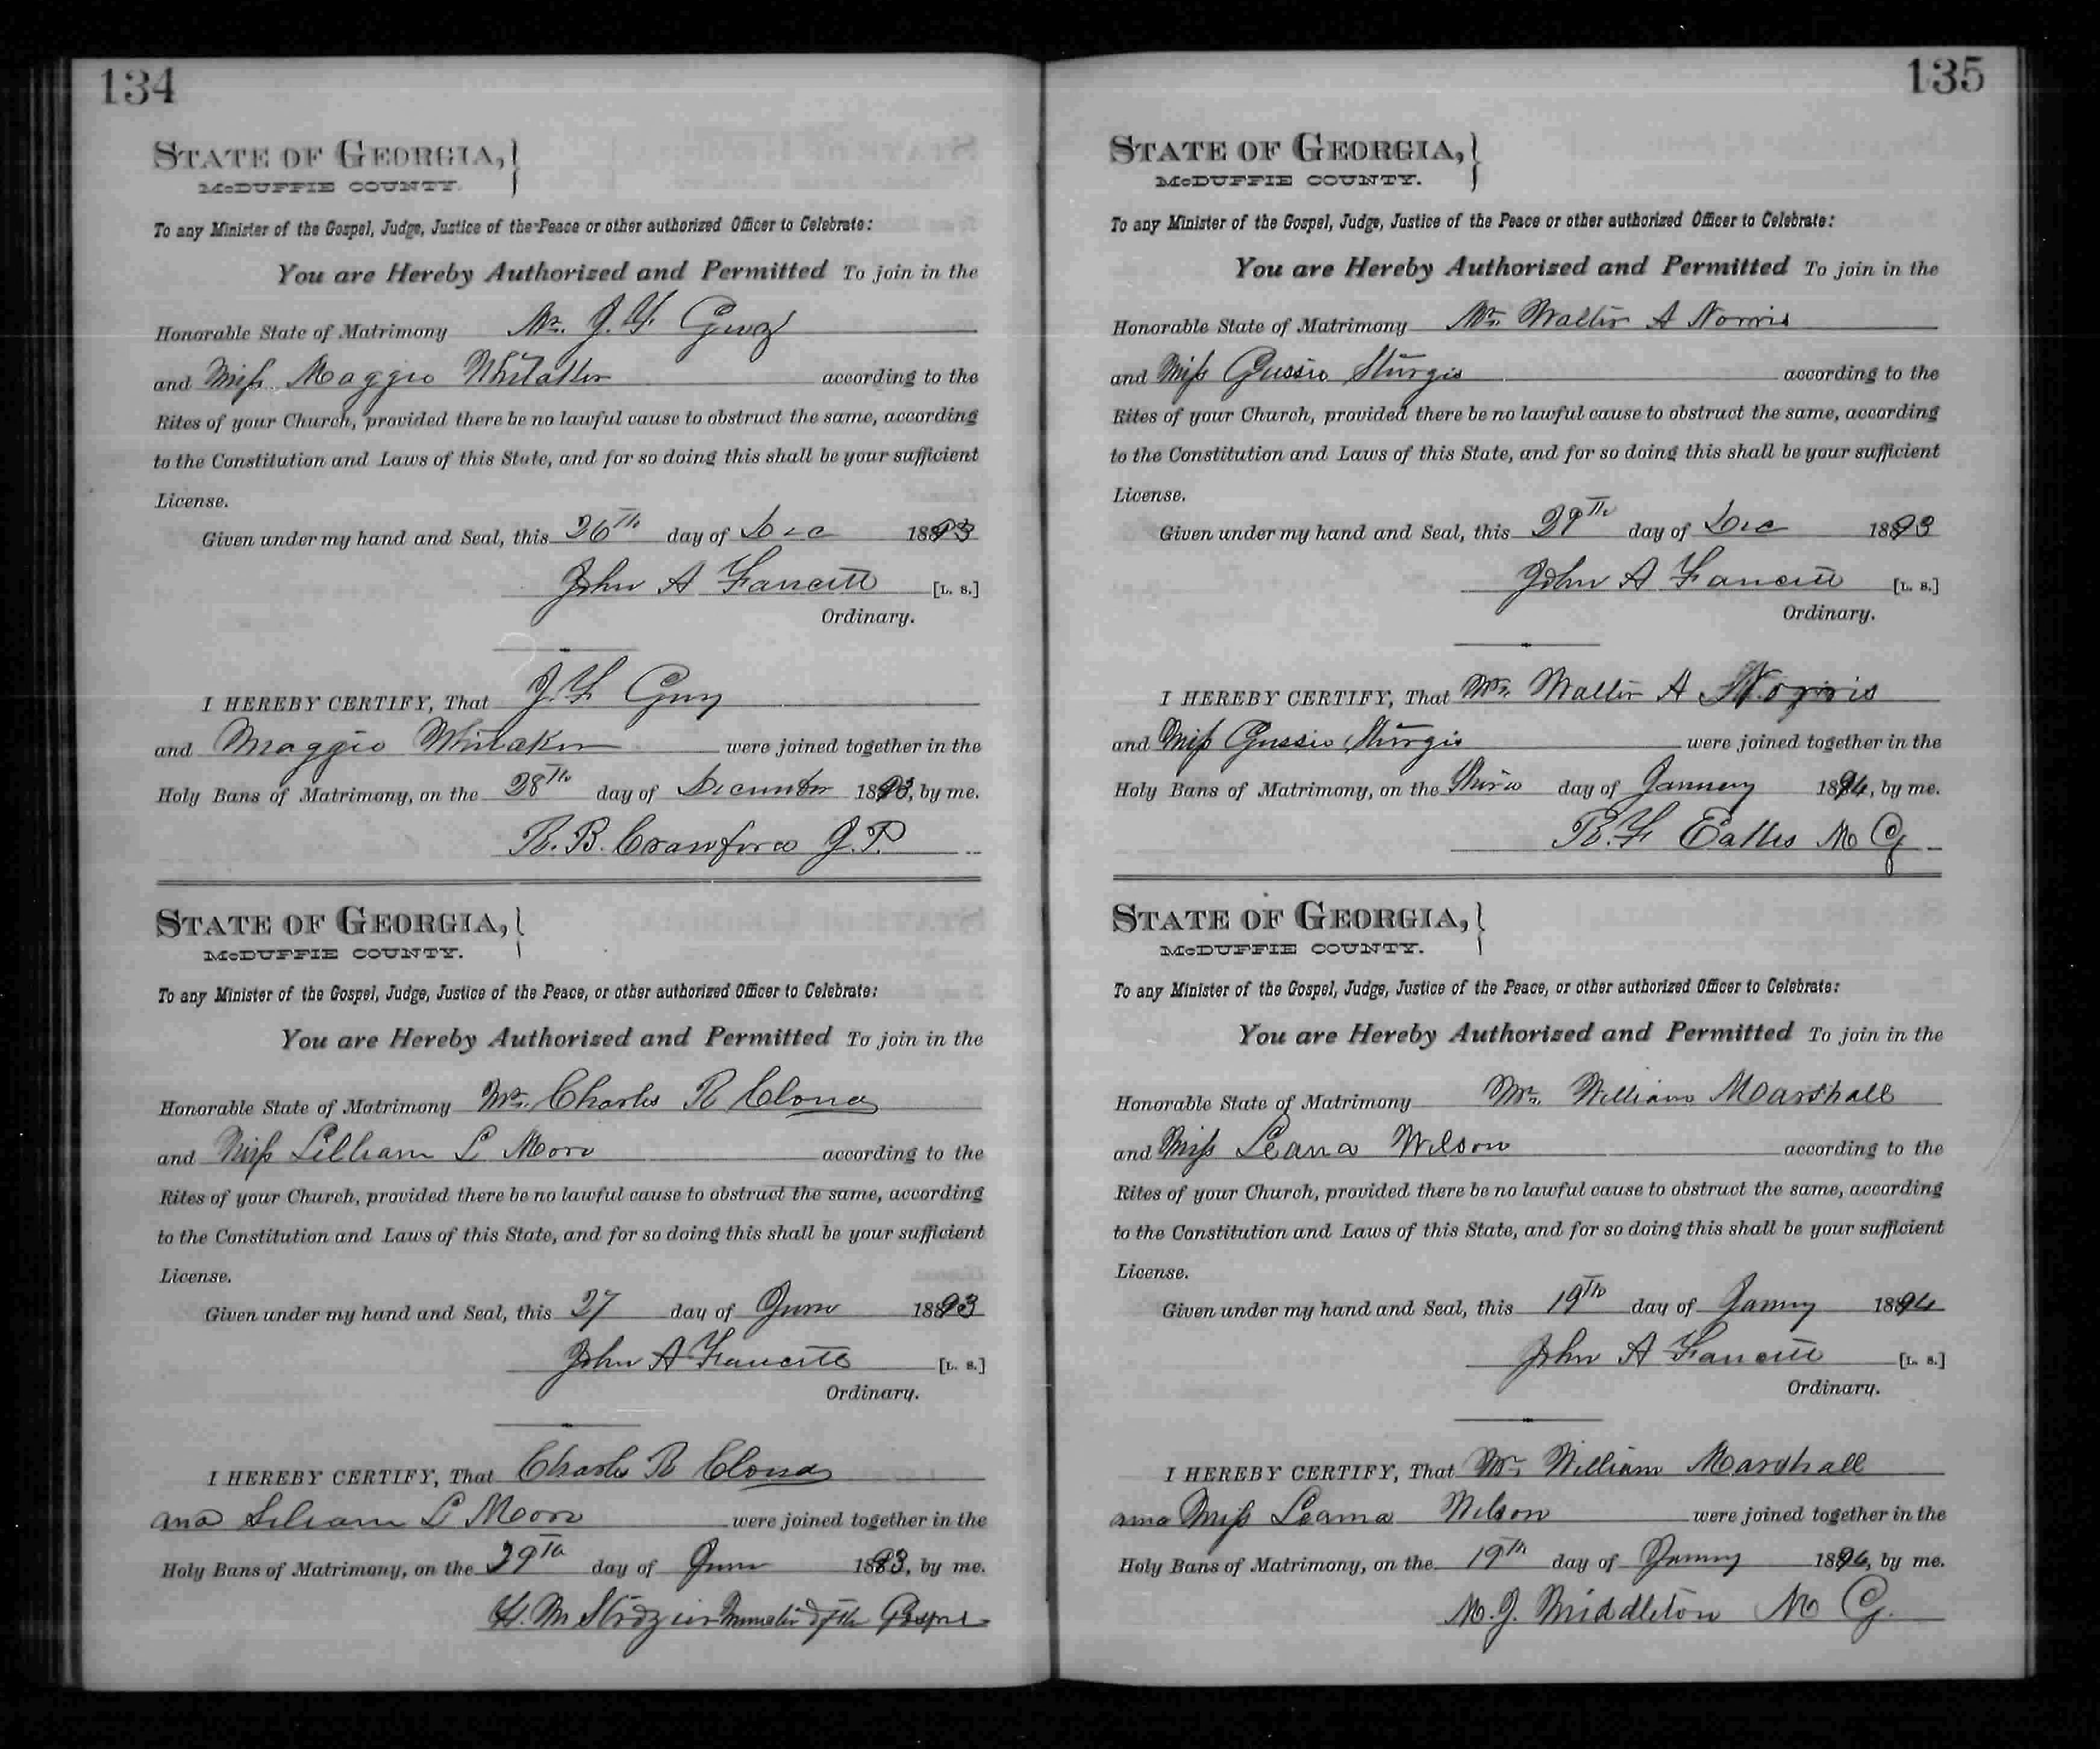 134
STATE OF GEORGIA,
McDUFFIE COUNTY.
To any Minister of the Gospel, Judge, Justice of the Peace or other authorized Officer to Celebrate:
You are Hereby Authorized and Permitted To join in the
Honorable State of Matrimony Mr. J. F. Guy
and Miss Maggie Whitaker according to the
Rites of your Church, provided there be no lawful cause to obstruct the same, according
to the Constitution and Laws of this State, and for so doing this shall be your sufficient
License.
Given under my hand and Seal, this 26th day of Dec 1893
John A [L. S.]
Ordinary.
I HEREBY CERTIFY, That J. F. Guy
and Maggie Whitaker were joined together in the
Holy Bans of Matrimony, on the 28th day of December 1893, by me.
R. B. Crawford J. P.
STATE OF GEORGIA,
McDUFFIE COUNTY.
To any Minister of the Gospel, Judge, Justice of the Peace, or other authorized Officer to Celebrate:
You are Hereby Authorized and Permitted To join in the
Honorable State of Matrimony Mr. Charles R Cloud
and Miss Lilliam L Moore according to the
Rites of your Church, provided there be no lawful cause to obstruct the same, according
to the Constitution and Laws of this State, and for so doing this shall be your sufficient
License.
Given under my hand and Seal, this 27 day of June 1893
John A [L. S.]
Ordinary.
I HEREBY CERTIFY, That Charles R Cloud
and Liliam L Moore were joined together in the
Holy Bans of Matrimony, on the 29th day of June 1893, by me.
H. M Strozier Minister of the Gospel
135
STATE OF GEORGIA,
McDUFFIE COUNTY.
To any Minister of the Gospel, Judge, Justice of the Peace or other authorized Officer to Celebrate:
You are Hereby Authorized and Permitted To join in the
Honorable State of Matrimony Mr. Walter A Norris
and Miss Gussie Sturgis according to the
Rites of your Church, provided there be no lawful cause to obstruct the same, according
to the Constitution and Laws of this State, and for so doing this shall be your sufficient
License.
Given under my hand and Seal, this 29th day of Dec 1893
John A [L. S.]
Ordinary.
I HEREBY CERTIFY, That Mr. Walter A Norris
and Miss Gussie Sturgis were joined together in the
Holy Bans of Matrimony, on the Third day of January 1894, by me.
R. F M G
STATE OF GEORGIA,
McDUFFIE COUNTY.
To any Minister of the Gospel, Judge, Justice of the Peace, or other authorized Officer to Celebrate:
You are Hereby Authorized and Permitted To join in the
Honorable State of Matrimony Mr. William Marshall
and Miss Leana Wilson according to the
Rites of your Church, provided there be no lawful cause to obstruct the same, according
to the Constitution and Laws of this State, and for so doing this shall be your sufficient
License.
Given under my hand and Seal, this 19th day of January 1894
John A [L. S.]
Ordinary.
I HEREBY CERTIFY, That Mr. William Marshall
and Miss Leana Wilson were joined together in the
Holy Bans of Matrimony, on the 19th day of January 1894, by me.
M. J. Middleton M G.